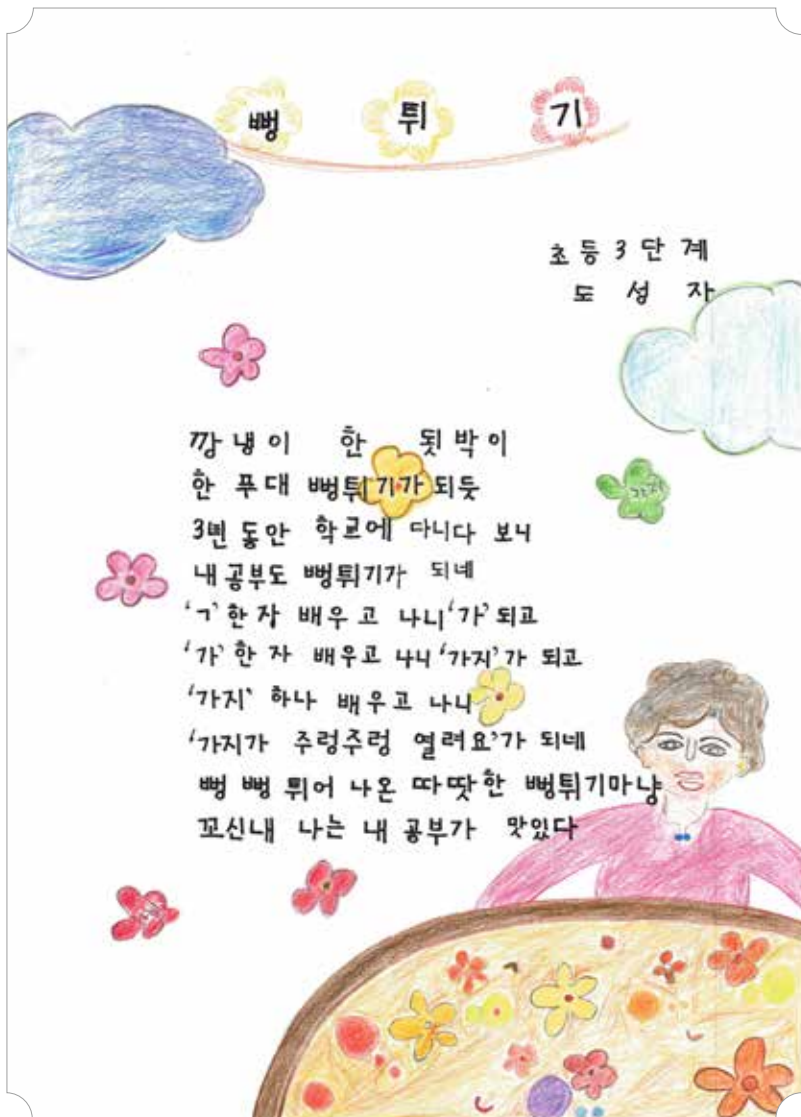 뻥 튀 기
초등 3 단계
도 성 자
깡냉이 한 됫박이
한 푸대 뻥튀기가 되듯
3년 동안 학교에 다니다 보니
내 공부도 뻥튀기가 되네
'ㄱ' 한 자 배우고 나니 '가' 되고
'가' 한 자 배우고 나니 '가지'가 되고
'가지' 하나 배우고 나니
'가지가 주렁주렁 열려요'가 되네
뻥 뻥 튀어 나온 따땃한 뻥튀기마냥
꼬신내 나는 내 공부가 맛있다